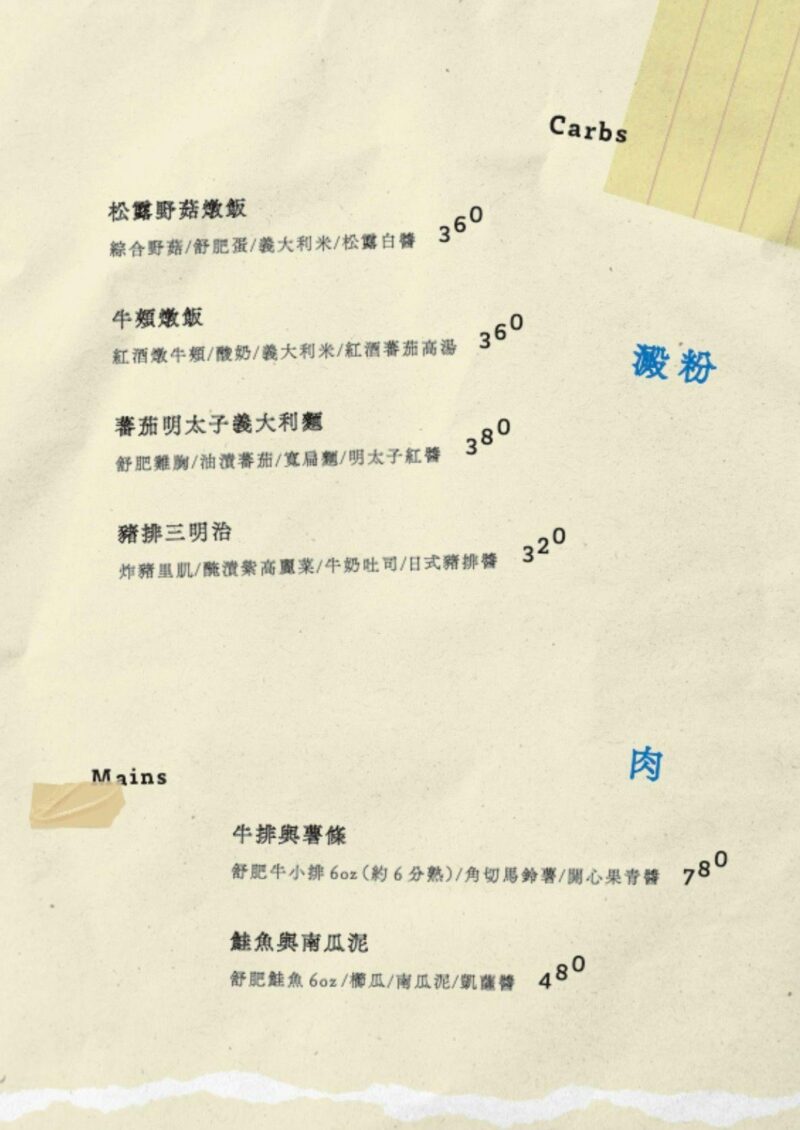 Carbs
松露野菇燉飯
綜合野菇/舒肥蛋/義大利米/松露白醬 360
牛頰燉飯
紅酒燉牛頰/酸奶/義大利米/紅酒蕃茄高湯 360
澱粉
蕃茄明太子義大利麵
舒肥雞胸/油漬蕃茄/寬扁麵/明太子紅醬 380
豬排三明治
炸豬里肌/醃漬紫高麗菜/牛奶吐司/日式豬排醬 320
肉
Mains
牛排與薯條
舒肥牛小排6oz(約6分熟)/角切馬鈴薯/開心果青醬 780
鮭魚與南瓜泥
舒肥鮭魚6oz/櫛瓜/南瓜泥/凱薩醬 480